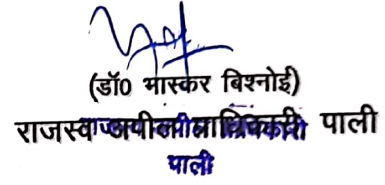 (डॉ0 भास्कर बिश्नोई)
राजस्व अपील प्राधिकारी पाली
पाली